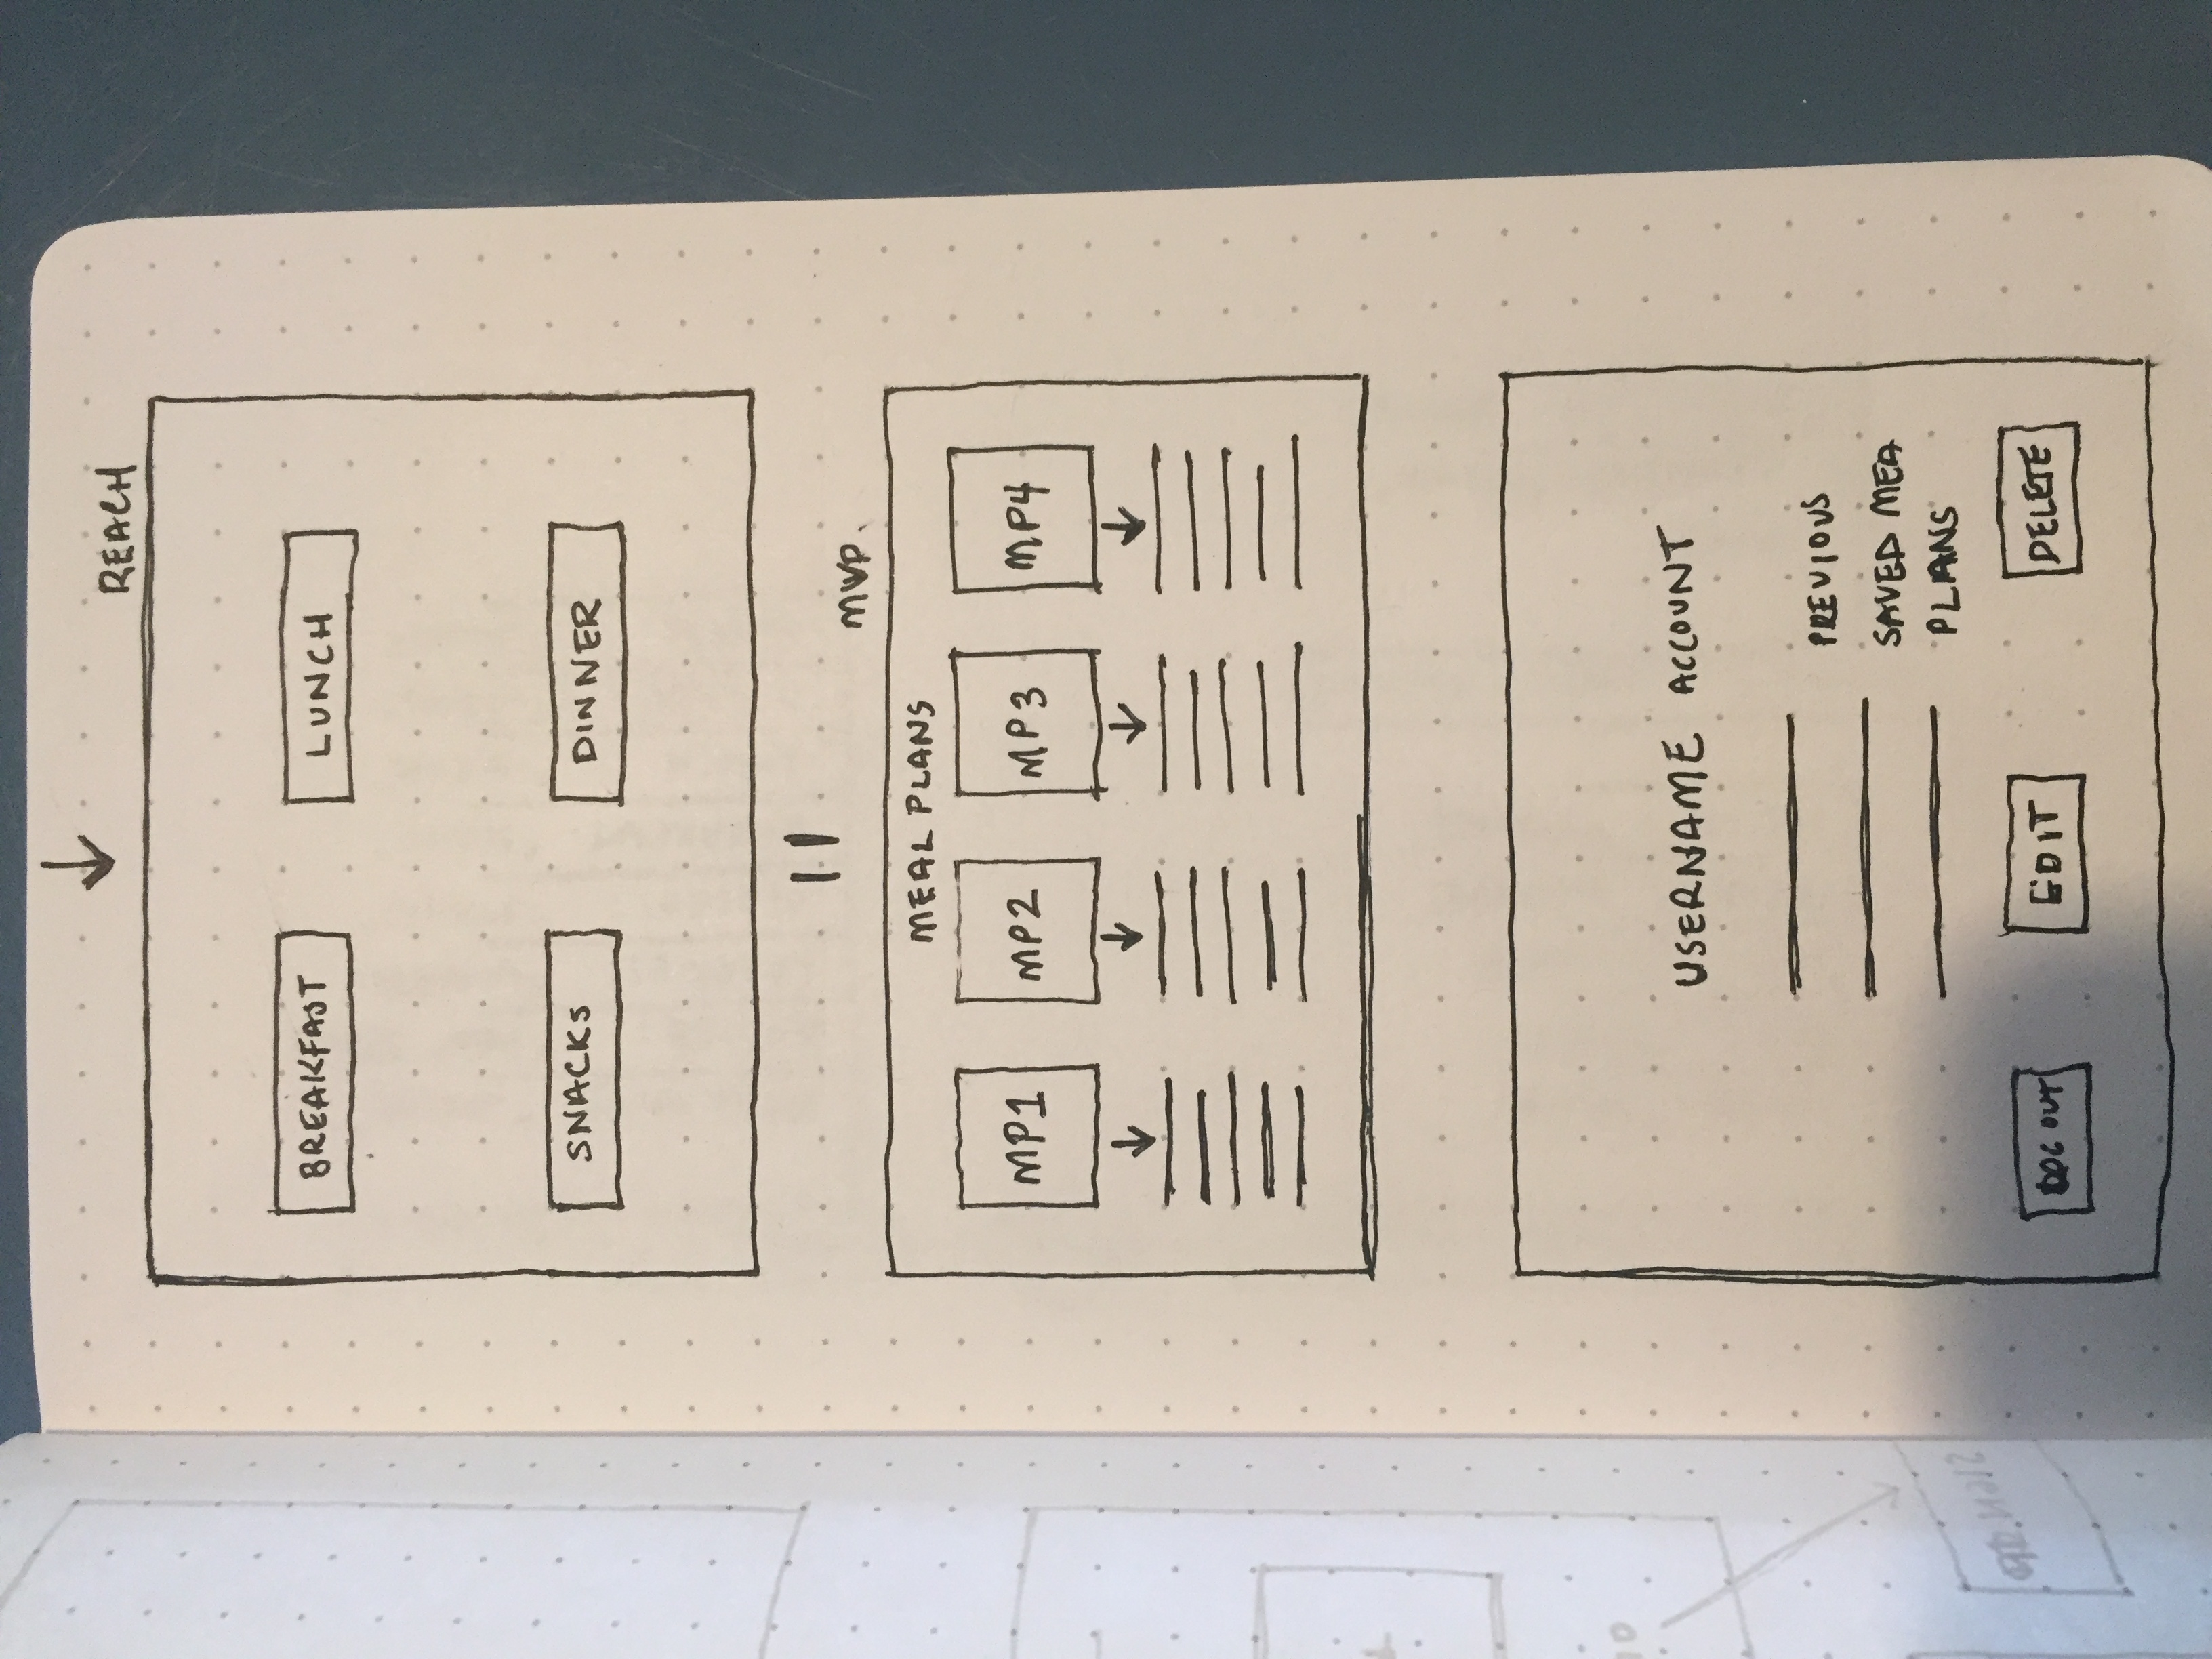 REACH
BREAKFAST
LUNCH
SNACKS
DINNER
MVP.
MEAL PLANS
MP1
MP2
MP3
MP4
USERNAME ACCOUNT
PREVIOUS
SAVED MEA
PLANS
LOG OUT
EDIT
DELETE